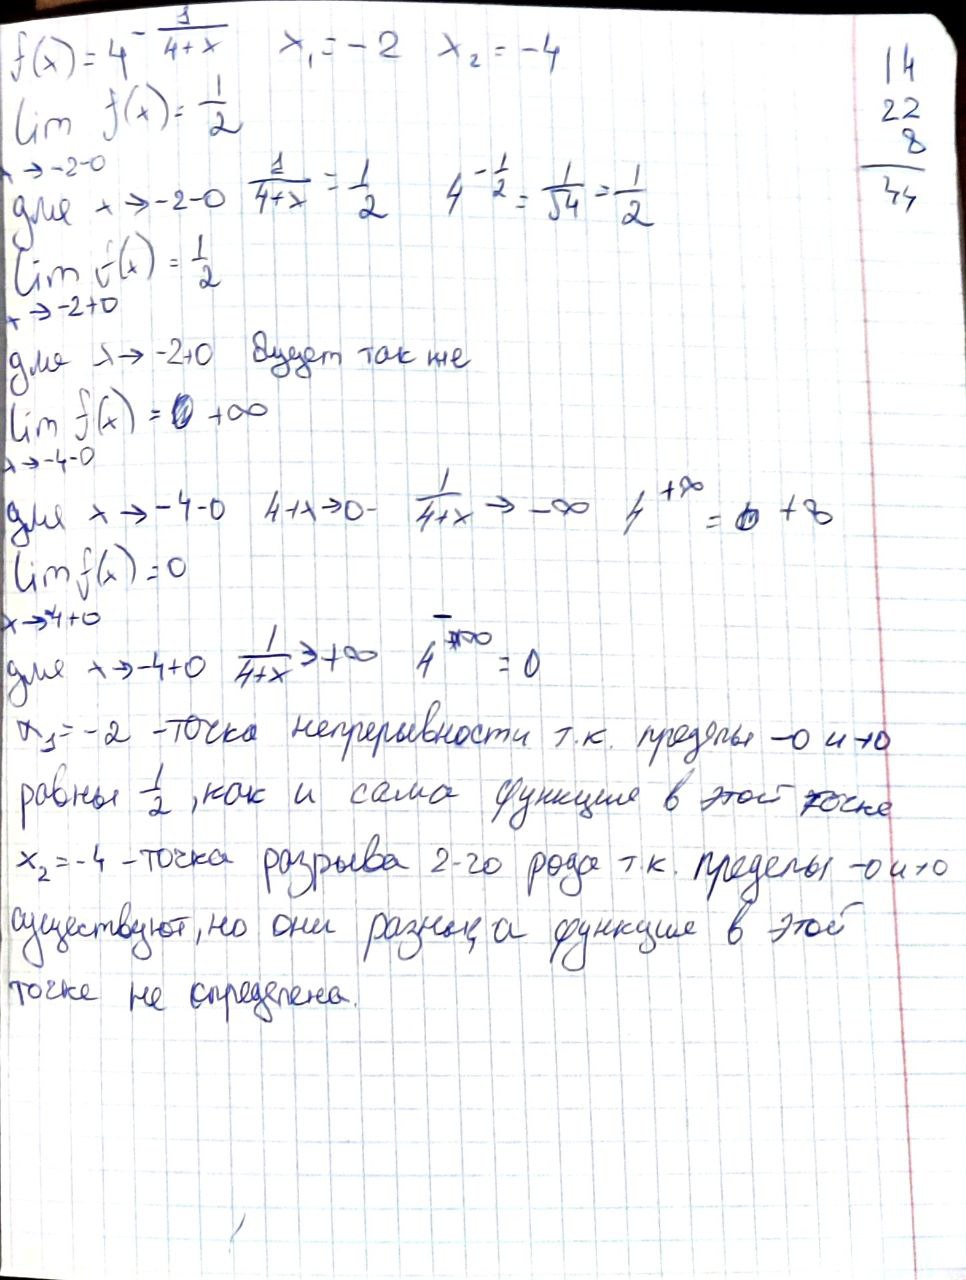 f(x) = 4^{-\frac{1}{4+x}} x₁ = -2 x₂ = -4
lim f(x) = \frac{1}{2}
x → -2-0
для x → -2-0 \frac{1}{4+x} = \frac{1}{2} 4^{-\frac{1}{2}} = \frac{1}{\sqrt{4}} = \frac{1}{2}
lim f(x) = \frac{1}{2}
x → -2+0
для x → -2+0 будет так же
lim f(x) = +∞
x → -4-0
для x → -4-0 4+x → 0- \frac{1}{4+x} → -∞ 4^{+∞} = +∞
lim f(x) = 0
x → -4+0
для x → -4+0 \frac{1}{4+x} → +∞ 4^{-∞} = 0
x₁ = -2 - точка непрерывности т.к. пределы -0 и +0
равны \frac{1}{2}, как и сама функция в этой точке
x₂ = -4 - точка разрыва 2-го рода т.к. пределы -0 и +0
существуют, но они разные, а функция в этой
точке не определена.
14
22
8
44